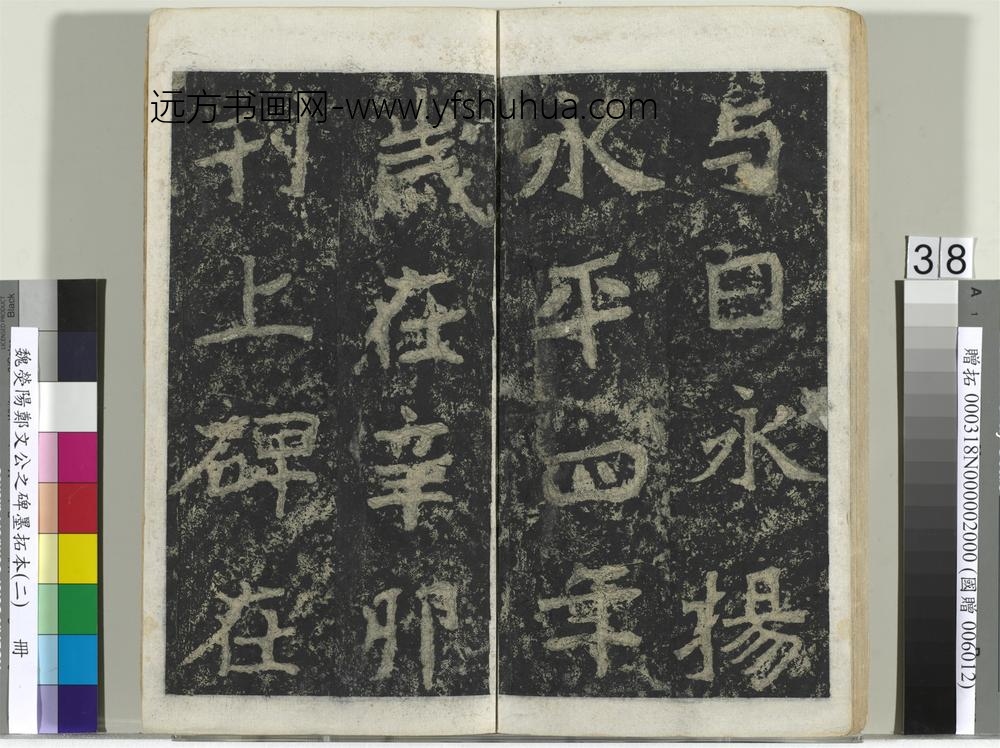 远方书画网-www.yfshuhua.com
与日永揚
永平四年
歲在辛卯
刊上碑在
38
A
1
贈拓 000318N000002000 (國贈 006012)
Black
魏熒陽鄭文公之碑墨拓本(二) 冊